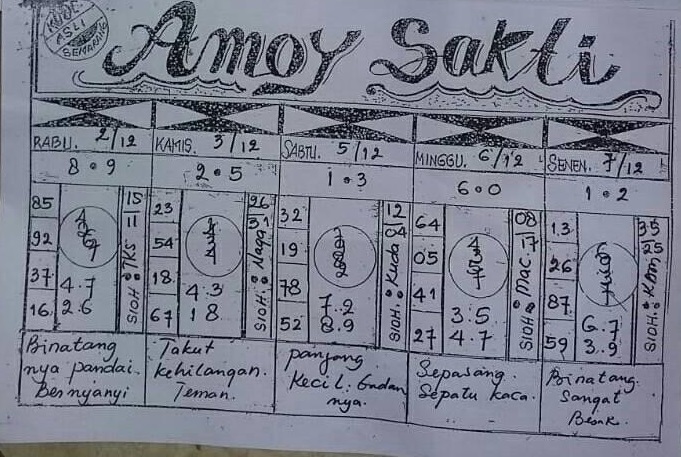 KODE
ASLI
SEMARANG
Amoy Sakti
RABU. 2/12
8 • 9
85
92
37
16
4.7
2.6
15
11
SIOH: TKS
Binatang
nya pandai.
Bernyanyi
KAMIS. 3/12
2 • 5
23
54
18
67
4.3
1 8
26
31
SIOH: Naga
Takut
kehilangan.
Teman.
SABTU. 5/12
1 • 3
32
19
78
52
7.2
8.9
12
04
SIOH: Kuda
panjang
Kecil. Badan
nya.
MINGGU. 6/12
6 • 0
64
05
41
27
3:5
4.7
08
17
SIOH: Mac.
Sepasang.
Sepatu kaca.
SENEN. 7/12
1 • 2
13
26
87
59
6.7
3.9
35
25
SIOH: Kam
Binatang.
Sangat
Besar.